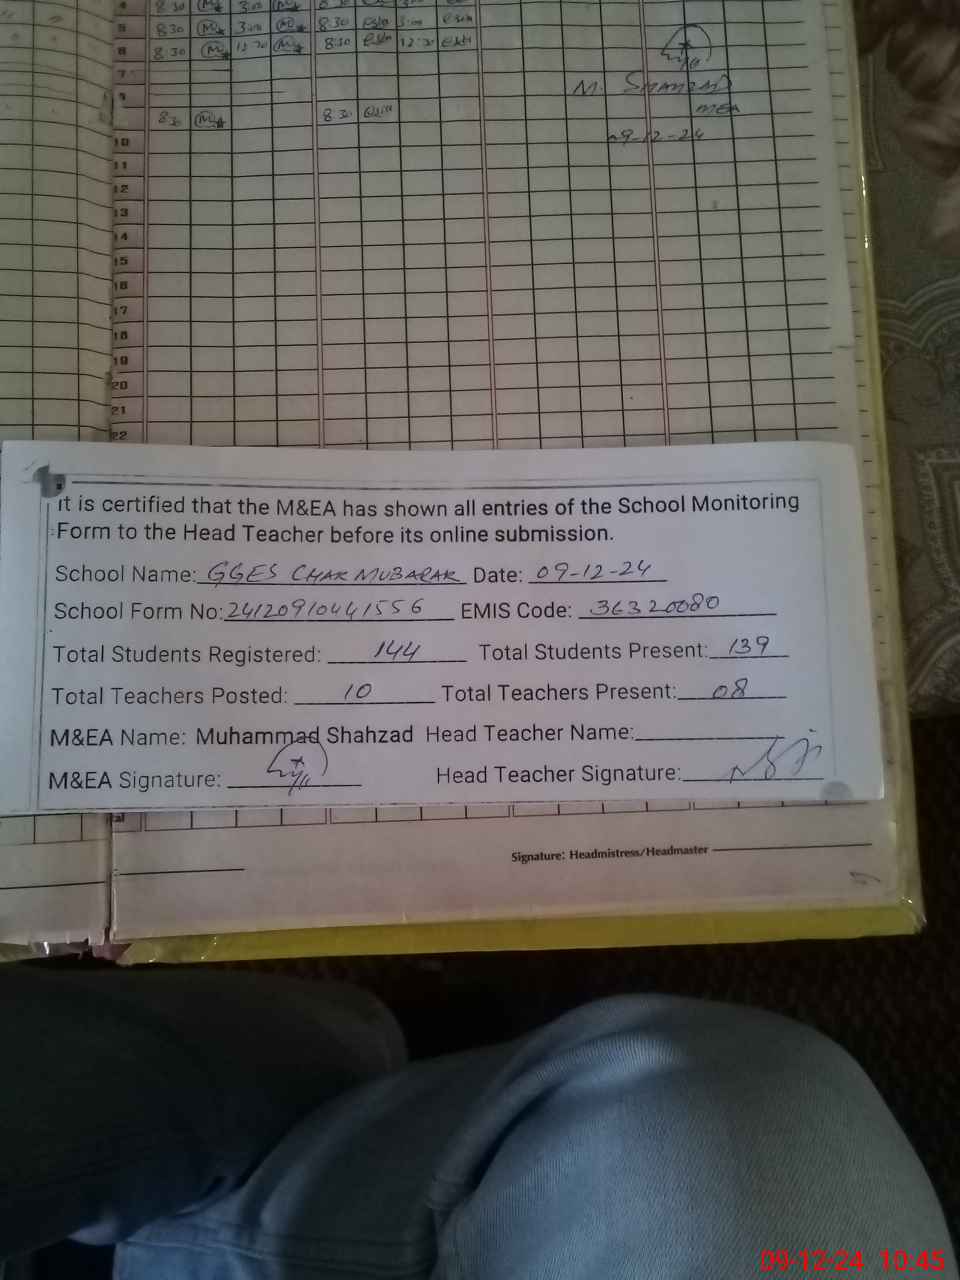 8 30 M 3:00 M 8 30
5 830 M 3:00 M 8 30 esha 3:00 esha
6 8:30 M 12:30 M 8:30 esha 12:30 esha
7
M. SHAHZAD
8:30 M 8:30
MEA
10 09-12-24
11
12
13
14
15
16
17
18
19
20
21
22
It is certified that the M&EA has shown all entries of the School Monitoring
Form to the Head Teacher before its online submission.
School Name: GGES CHAK MUBARAK Date: 09-12-24
School Form No: 24120910441556 EMIS Code: 36320080
Total Students Registered: 144 Total Students Present: 139
Total Teachers Posted: 10 Total Teachers Present: 08
M&EA Name: Muhammad Shahzad Head Teacher Name:
M&EA Signature: Head Teacher Signature:
Signature: Headmistress/Headmaster
09-12-24 10:45